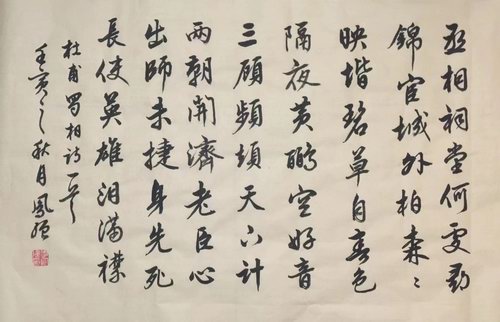 丞相祠堂何處尋
錦官城外柏森々
映堦碧草自春色
隔夜黄鸝空好音
三顾頻煩天下計
两朝開濟老臣心
出師未捷身先死
長使英雄泪满襟
杜甫蜀相詩一首
壬寅之秋月鳳